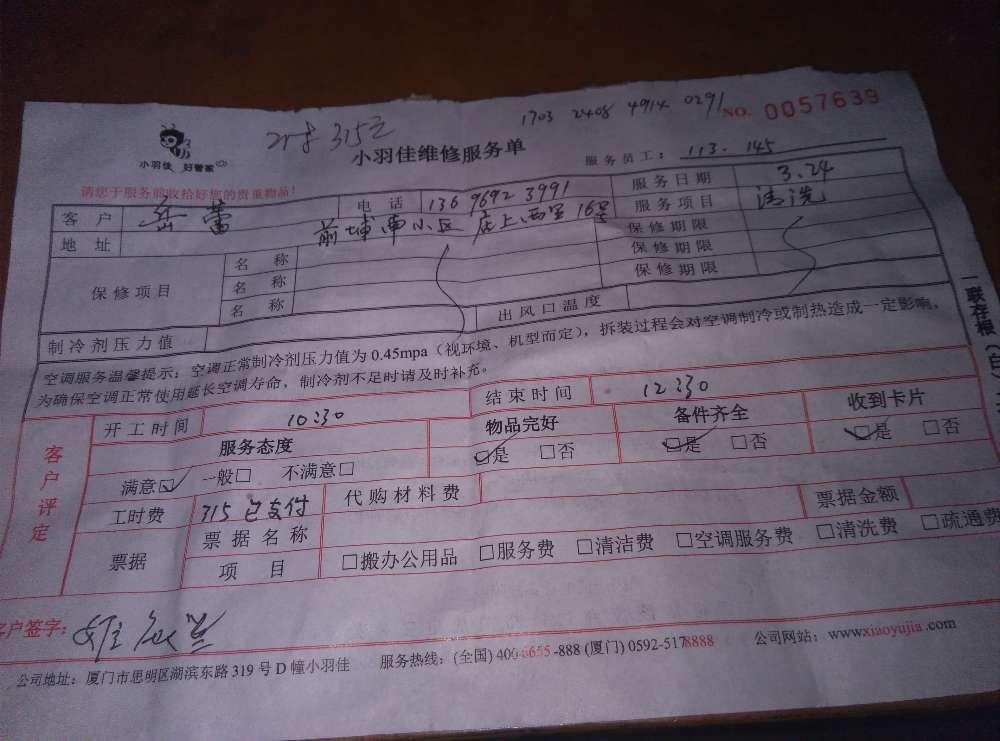 1703 2408 4914 0291 NO. 0057639
315元
小羽佳 好管家
小羽佳维修服务单
服务员工: 113. 145
请您于服务前收拾好您的贵重物品!
客户 岳蕾 电话 136 9692 3991 服务日期 3.24
地址 前埔南小区 店上西里16号 服务项目 清洗
保修项目 名称 保修期限
名称 保修期限
名称 保修期限
制冷剂压力值 出风口温度
空调服务温馨提示:空调正常制冷剂压力值为0.45mpa(视环境、机型而定),拆装过程会对空调制冷或制热造成一定影响。
为确保空调正常使用延长空调寿命,制冷剂不足时请及时补充。
一联存根(白)
客户评定
开工时间 10:30 结束时间 12:30
服务态度 物品完好 备件齐全 收到卡片
满意☑ 一般□ 不满意□ ☑是 □否 ☑是 □否 ☑是 □否
工时费 315 已支付 代购材料费
票据 票据名称 票据金额
项目 □搬办公用品 □服务费 □清洁费 □空调服务费 □清洗费 □疏通费
客户签字:
公司地址:厦门市思明区湖滨东路319号D幢小羽佳 服务热线:(全国)400-6655-888(厦门)0592-5178888 公司网站:www.xiaoyujia.com